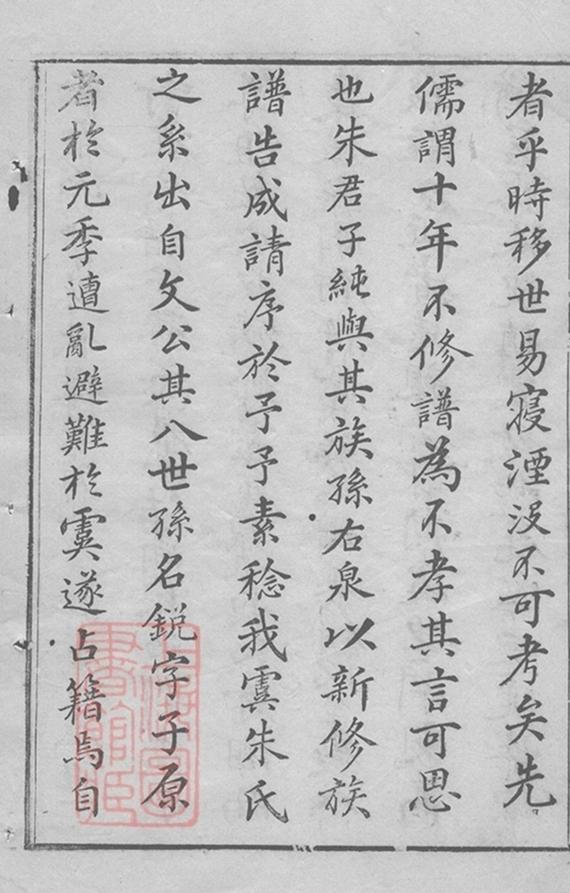 者乎時移世易寢湮没不可考矣先
儒謂十年不修譜為不孝其言可思
也朱君子純與其族孫右泉以新修族
譜告成請序於予予素稔我虞朱氏
之系出自文公其八世孫名鋭字子原
者於元季遭亂避難於虞遂占籍焉自